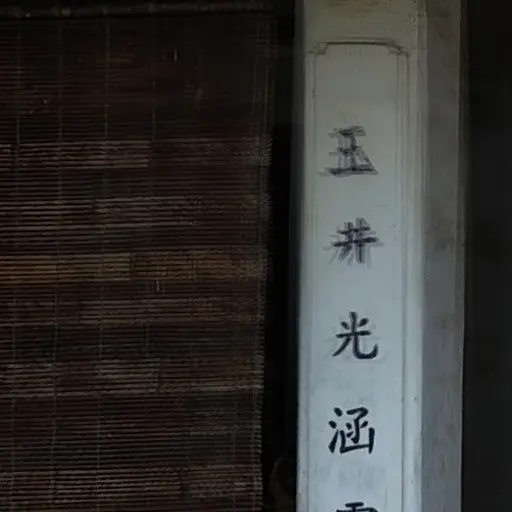 玉井光涵